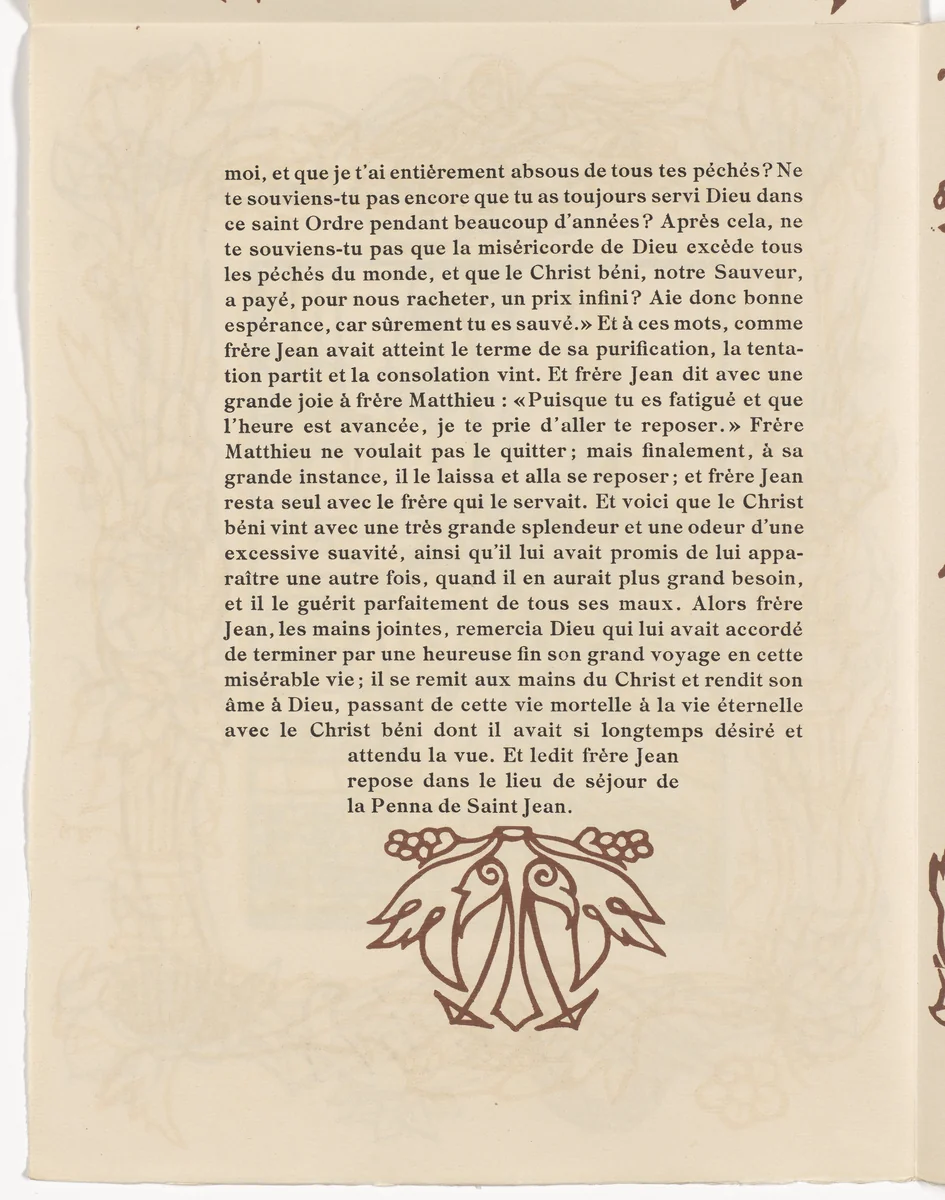 moi, et que je t'ai entièrement absous de tous tes péchés? Ne
te souviens-tu pas encore que tu as toujours servi Dieu dans
ce saint Ordre pendant beaucoup d'années? Après cela, ne
te souviens-tu pas que la miséricorde de Dieu excède tous
les péchés du monde, et que le Christ béni, notre Sauveur,
a payé, pour nous racheter, un prix infini? Aie donc bonne
espérance, car sûrement tu es sauvé.» Et à ces mots, comme
frère Jean avait atteint le terme de sa purification, la tenta-
tion partit et la consolation vint. Et frère Jean dit avec une
grande joie à frère Matthieu : «Puisque tu es fatigué et que
l'heure est avancée, je te prie d'aller te reposer.» Frère
Matthieu ne voulait pas le quitter; mais finalement, à sa
grande instance, il le laissa et alla se reposer; et frère Jean
resta seul avec le frère qui le servait. Et voici que le Christ
béni vint avec une très grande splendeur et une odeur d'une
excessive suavité, ainsi qu'il lui avait promis de lui appa-
raître une autre fois, quand il en aurait plus grand besoin,
et il le guérit parfaitement de tous ses maux. Alors frère
Jean, les mains jointes, remercia Dieu qui lui avait accordé
de terminer par une heureuse fin son grand voyage en cette
misérable vie; il se remit aux mains du Christ et rendit son
âme à Dieu, passant de cette vie mortelle à la vie éternelle
avec le Christ béni dont il avait si longtemps désiré et
attendu la vue. Et ledit frère Jean
repose dans le lieu de séjour de
la Penna de Saint Jean.